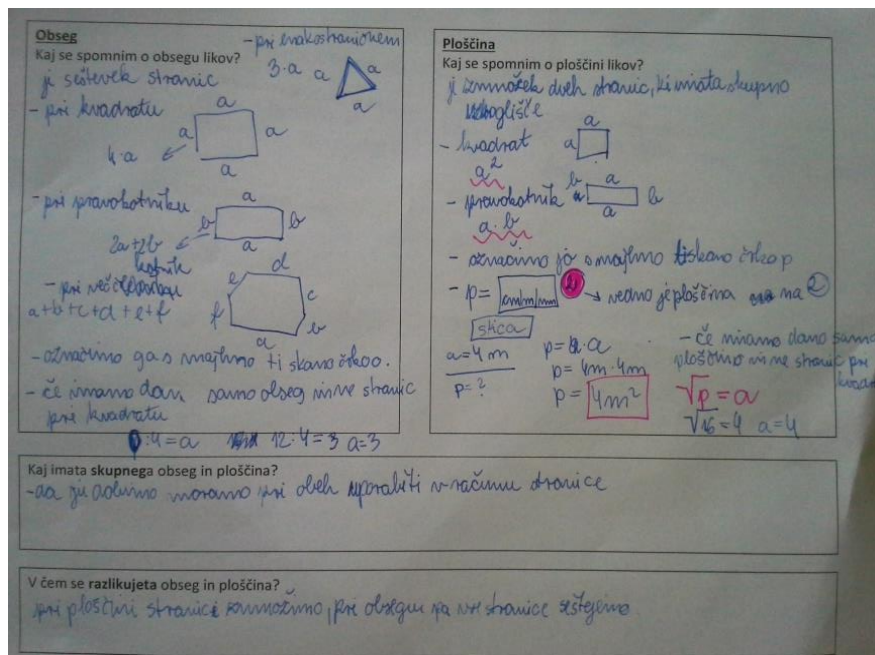 Obseg
Kaj se spomnim o obsegu likov?
je seštevek stranic
- pri enakostraničnem
3·a a a
a
- pri kvadratu
a
a a
a
4·a
- pri pravokotniku
a
b b
a
2a+2b
- pri
d
e c
f b
a
a+b+c+d+e+f
- označimo ga s majhno tiskano črko o.
- če imamo dan samo obseg in ne stranic
pri kvadratu
:4=a 12:4=3 a=3
Ploščina
Kaj se spomnim o ploščini likov?
je zmnožek dveh stranic, ki imata skupno
oglišče
- kvadrat
a
a
a²
- pravokotnik
b a b
a
a·b
- označimo jo s majhno tiskano črko p
- p= cm/m/mm 2 → vedno je ploščina na 2
skica
a=4m
p=?
p= a·a
p= 4m·4m
p= 4m²
- če imamo dano samo
ploščino in ne stranic pri
√p = a
√16=4 a=4
Kaj imata skupnega obseg in ploščina?
- da ju dobimo moramo pri obeh uporabiti v računu stranice
V čem se razlikujeta obseg in ploščina?
pri ploščini stranici zmnožimo, pri obsegu pa vse stranice seštejemo